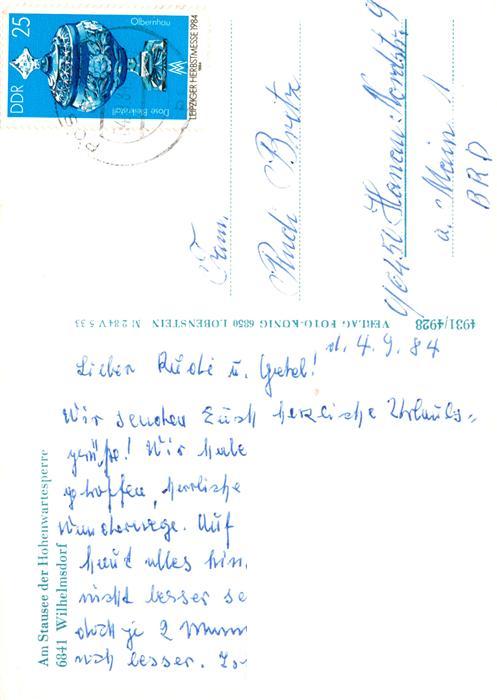 DDR 25
Olbernhau
Dose Bleikristall
LEIPZIGER HERBSTMESSE 1984
Fam.
Rudi Britz
6450 Hanau Nordstr. 9
a. Main 1
BRD
4931/4928 VERLAG FOTO-KÖNIG 6850 LOBENSTEIN M 2 84 V 5 33
Am Stausee der Hohenwartesperre
6841 Wilhelmsdorf
d. 4.9.84
Lieber Rudi u. !
Wir senden Euch herzliche Urlaubs-
grüße! Wir habe
getroffen, herrliche
Wanderwege. Auf
haut alles hin,
nicht besser se
doch je 2
noch besser.